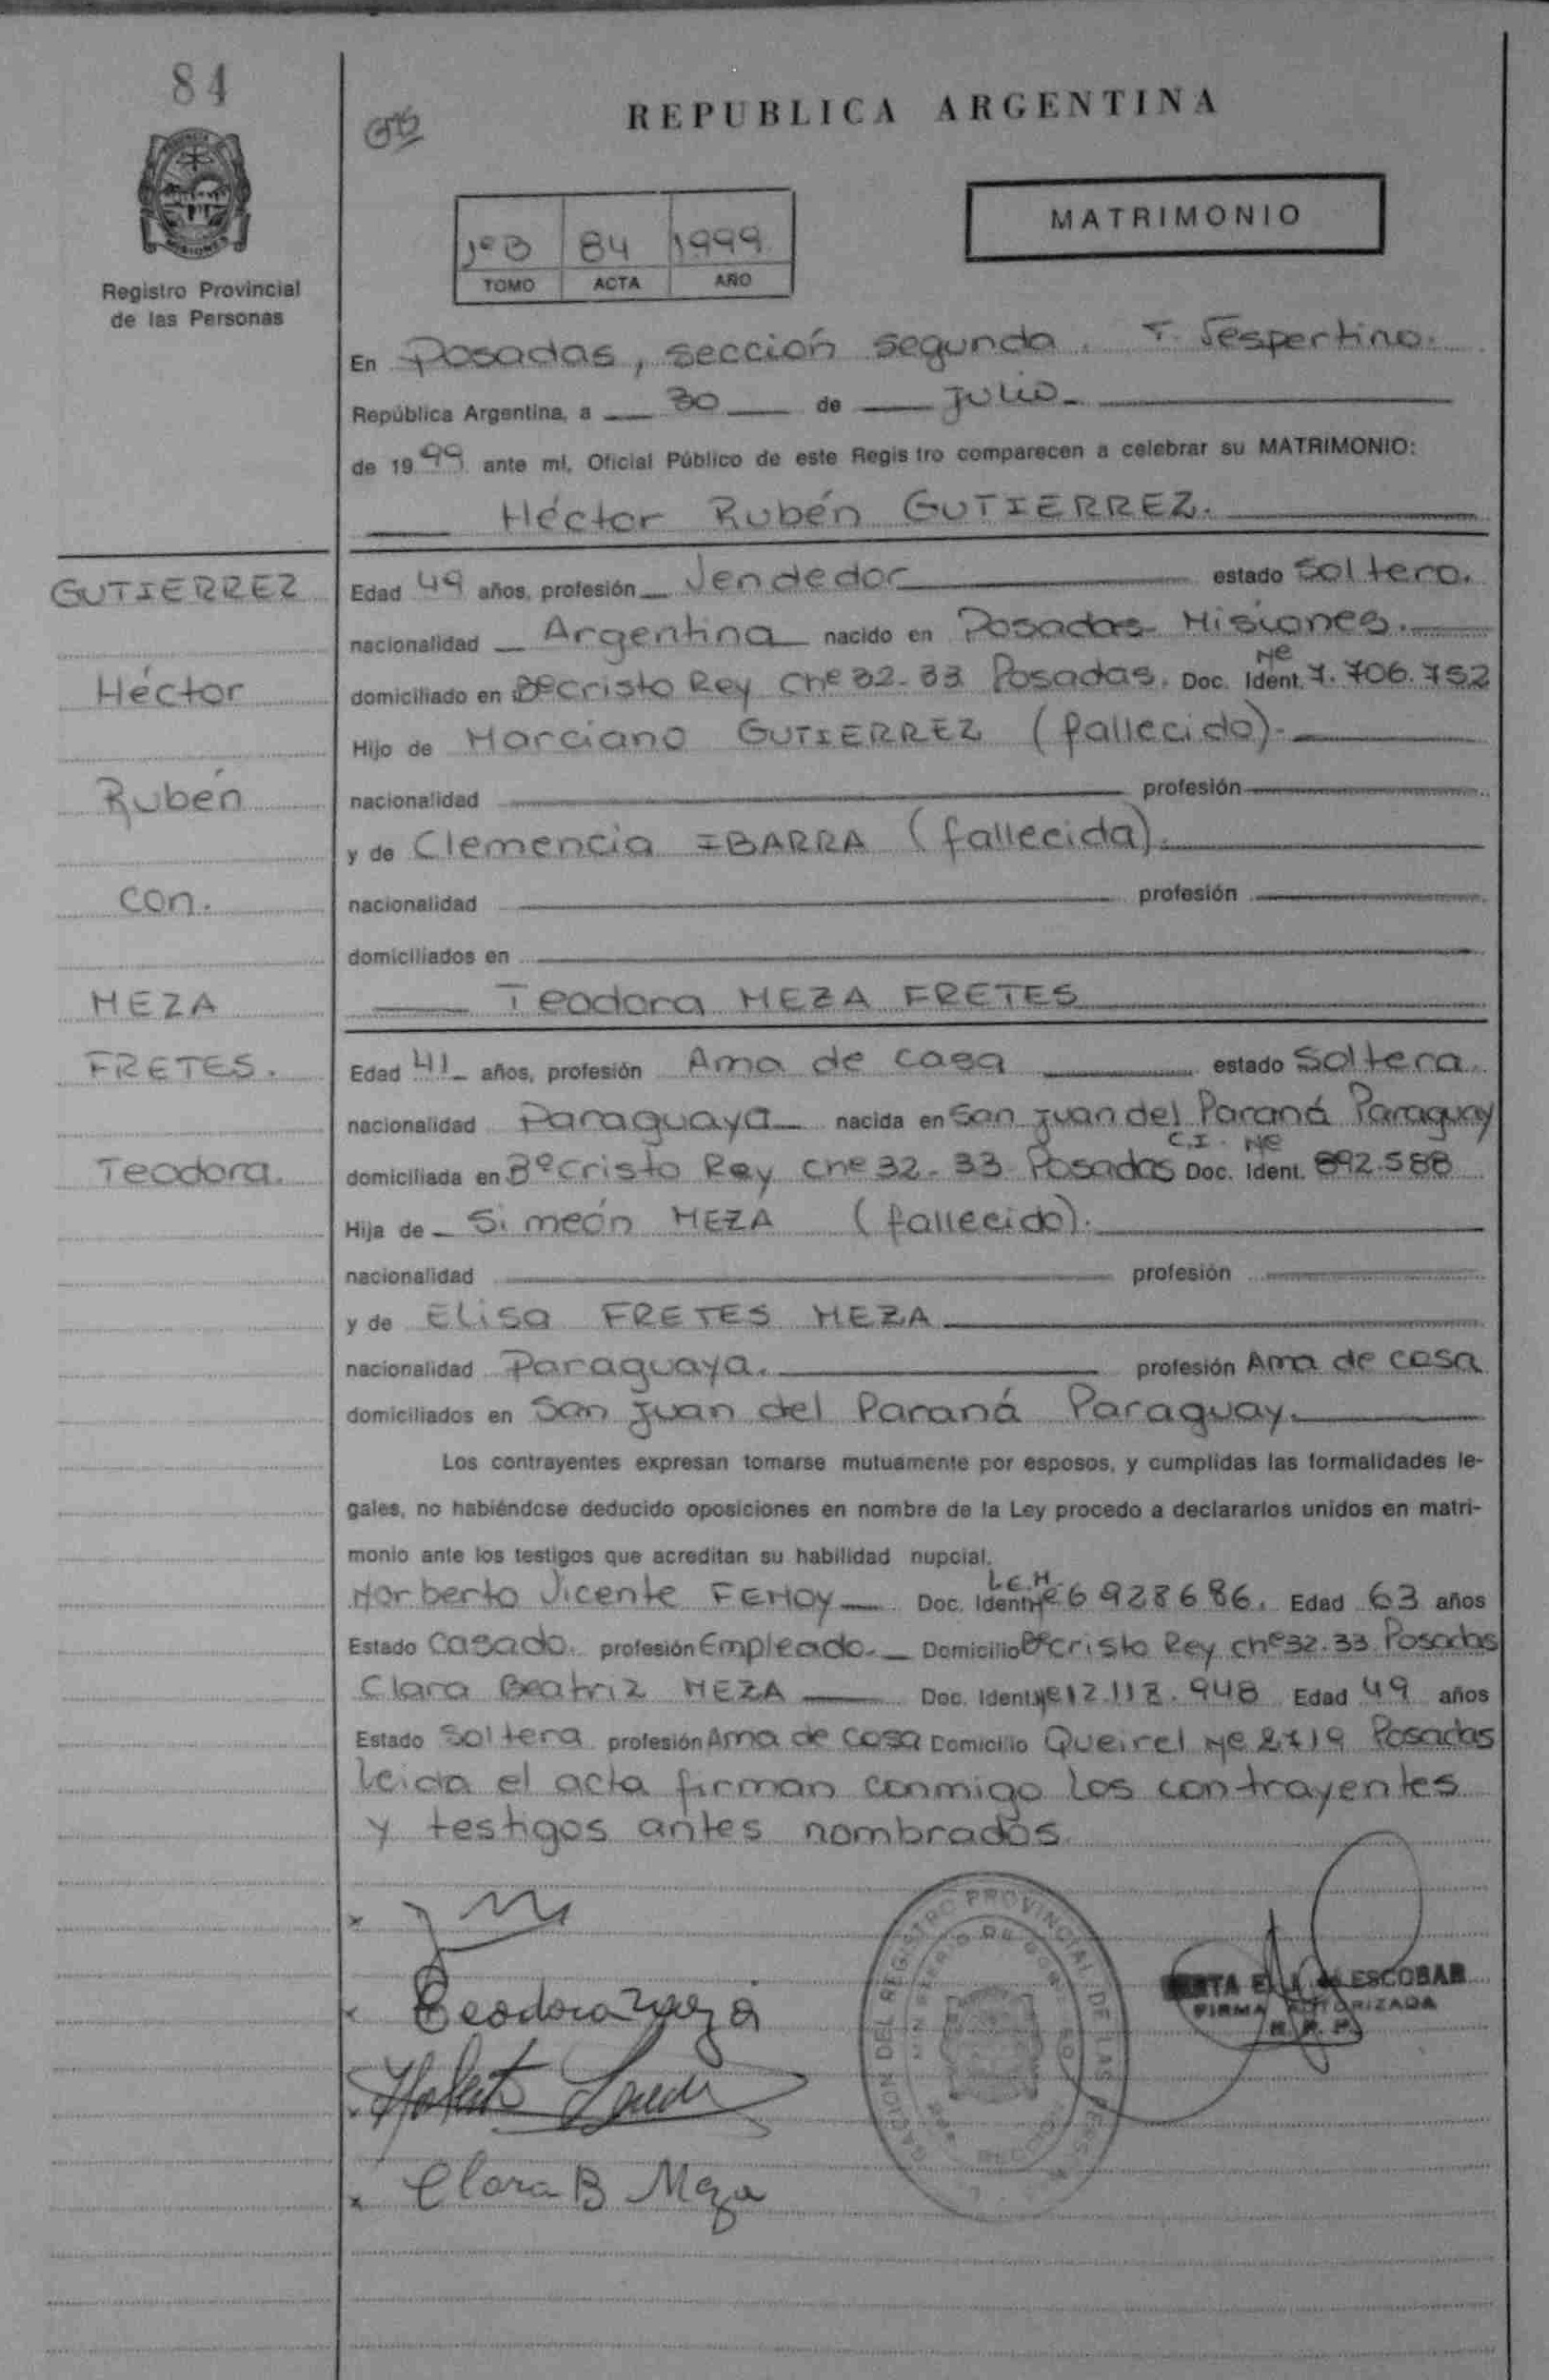 84
REPUBLICA ARGENTINA
MATRIMONIO
1º B 84 1999
TOMO ACTA AÑO
Registro Provincial
de las Personas
En Posadas, sección segunda. T. Vespertino.
República Argentina, a 30 de Julio
de 1999 ante mí, Oficial Público de este Registro comparecen a celebrar su MATRIMONIO:
Héctor Rubén GUTIERREZ.
GUTIERREZ
Héctor
Rubén
con.
MEZA
FRETES.
Teodora.
Edad 49 años, profesión Vendedor estado Soltero.
nacionalidad Argentina nacido en Posadas Misiones.
domiciliado en Bº Cristo Rey Chº 32-33 Posadas. Doc. Ident. Nº 7.706.752
Hijo de Marciano GUTIERREZ (fallecido).
nacionalidad profesión
y de Clemencia IBARRA (fallecida).
nacionalidad profesión
domiciliados en
Teodora MEZA FRETES
Edad 41 años, profesión Ama de casa estado Soltera
nacionalidad Paraguaya nacida en San Juan del Paraná Paraguay
domiciliada en Bº Cristo Rey Chº 32-33 Posadas Doc. Ident. C.I. Nº 892.588
Hija de Simeón MEZA (fallecido).
nacionalidad profesión
y de Elisa FRETES MEZA
nacionalidad Paraguaya. profesión Ama de casa
domiciliados en San Juan del Paraná Paraguay.
Los contrayentes expresan tomarse mutuamente por esposos, y cumplidas las formalidades le-
gales, no habiéndose deducido oposiciones en nombre de la Ley procedo a declararlos unidos en matri-
monio ante los testigos que acreditan su habilidad nupcial.
Norberto Vicente FEMOY Doc. Ident. L.E.M. Nº 6928686. Edad 63 años
Estado Casado. profesión Empleado. Domicilio Bº Cristo Rey Chº 32-33 Posadas
Clara Beatriz MEZA Doc. Ident. Nº 12.118.948 Edad 49 años
Estado Soltera profesión Ama de casa Domicilio Queirel Nº 2719 Posadas
Leida el acta firman conmigo los contrayentes
y testigos antes nombrados
Teodora Meza
Clara B Meza
REGISTRO PROVINCIAL DE LAS
ESCOBAR
FIRMA AUTORIZADA
R. P. P.